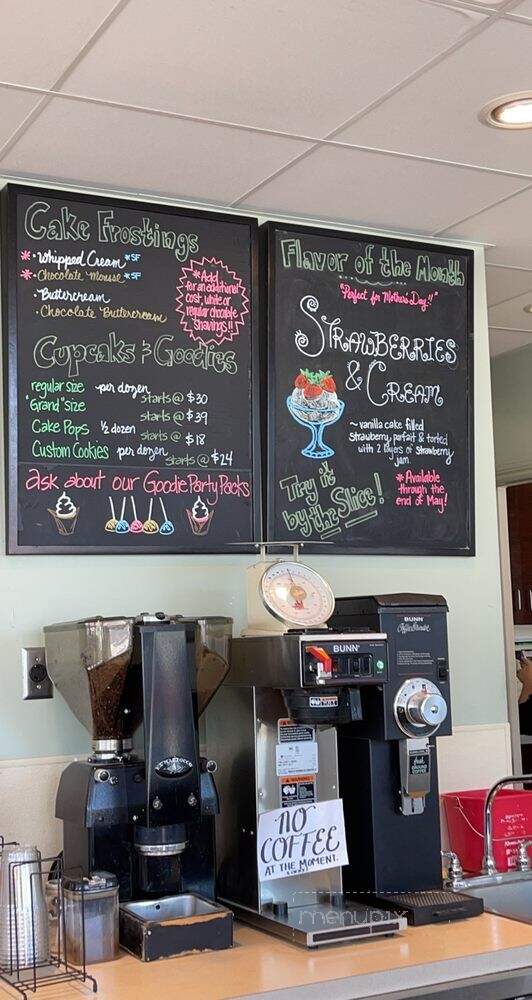 Cake Frostings
* • Whipped Cream *SF
* • Chocolate Mousse *SF
• Buttercream
• Chocolate Buttercream
*Add
for an additional
cost, white or
regular chocolate
shavings!!
Cupcaks & Goodies
regular size - per dozen starts @ $30
"Grand" size starts @ $39
Cake Pops ½ dozen starts @ $18
Custom Cookies per dozen starts @ $24
ask about our Goodie Party Packs
Flavor of the Month
"Perfect for Mother's Day!!"
STRAWBERRIES
& CREAM
~ vanilla cake filled
strawberry parfait & torted
with 2 layers of strawberry
jam
Try it
by the Slice!
* Available
through the
end of May!
BUNN
BUNN
fresh
GROUND
COFFEE
NO
COFFEE
AT THE MOMENT.
menupix